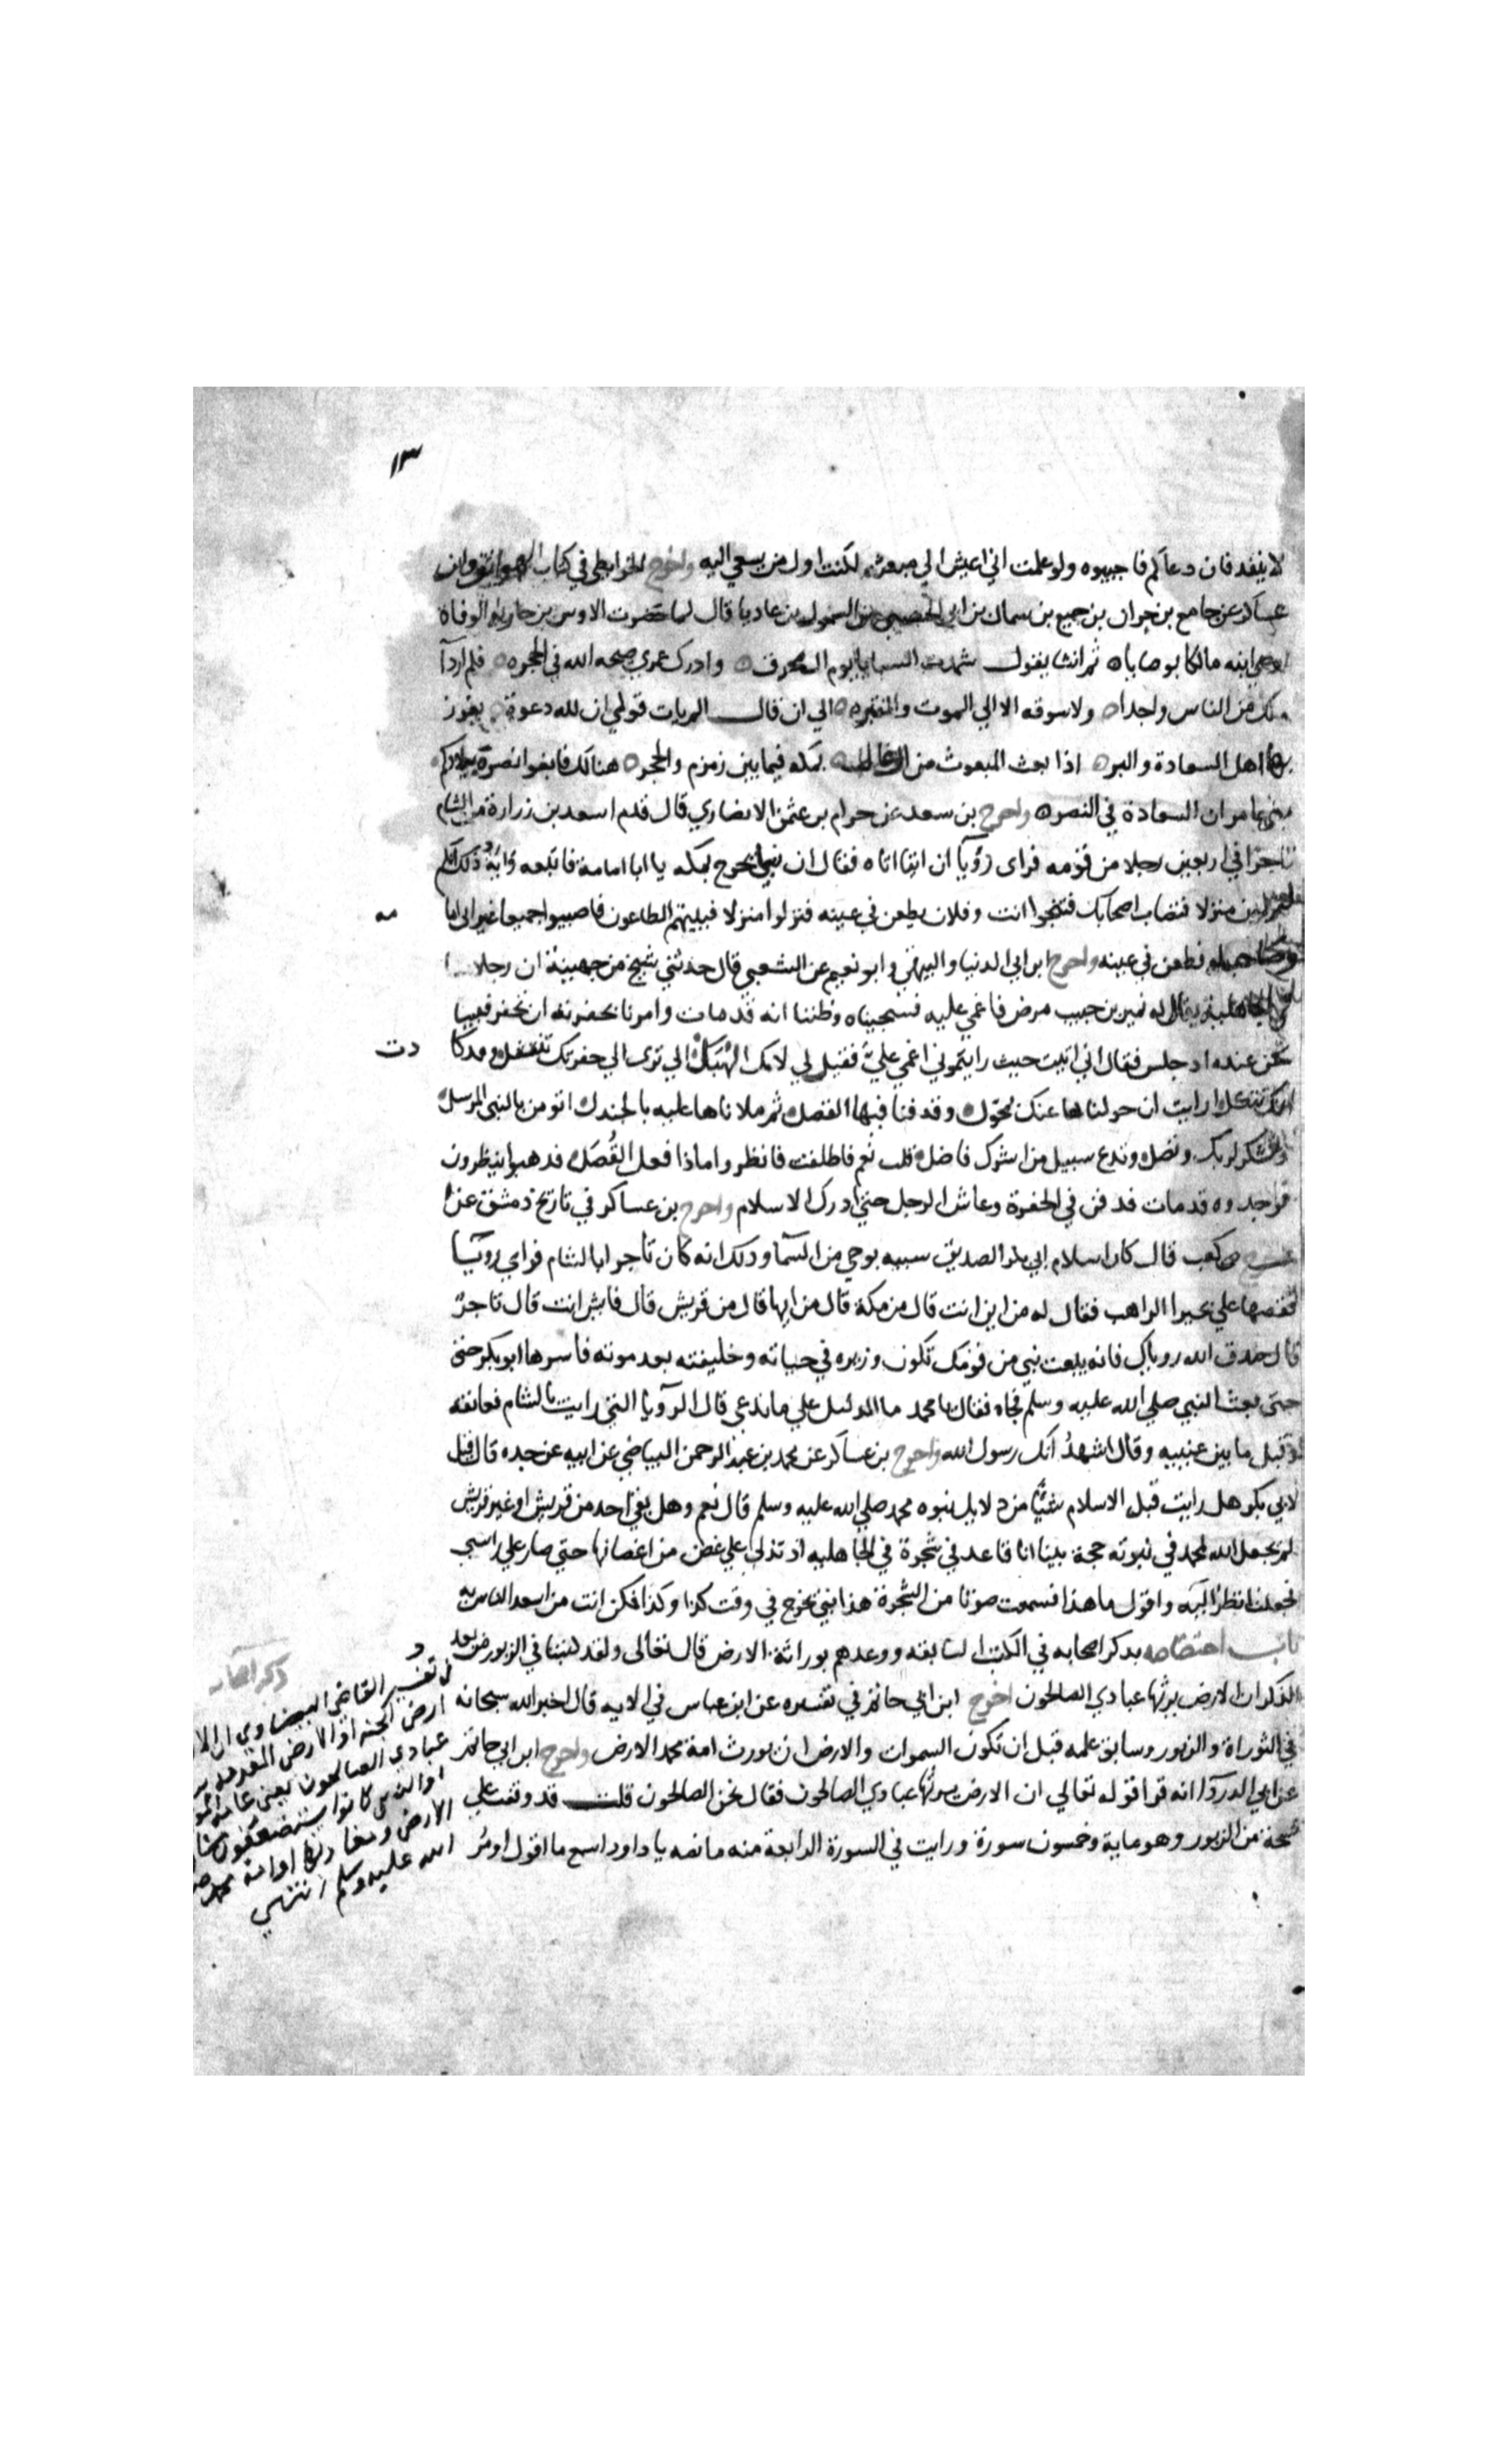 ١٣
لا ينفد فان دعاكم فاجيبوه ولو علمت اني اعيش الي مبعثه لكنت اول من يسعي اليه واخرج الخرايطي في كتاب الهواتف وابن
عساكر عن جامع بن جيران بن جميع بن سمان بن ابي الحصين بن السمول بن عاديا قال لما حضرت الاوس بن حارثة الوفاة
اوصي ابنه مالكا بوصاياه ثم انشا يقول شهدت السبايا يوم ال محرق وادرك عمري صيحه الله في الحجره فلم ار ذا
ملك من الناس واحدا ولا سوقه الا الي الموت والقبر الي ان قال الم يات قومي ان لله دعوة يفوز
بها اهل السعادة والبر اذا بعث المبعوث من ال غالب بمكه فيما بين زمزم والحجر هنالك فابغوا نصرة ببلادكم
بني عامر ان السعادة في النصر واخرج بن سعد عن حرام بن عثمن الانصاري قال قدم اسعد بن زرارة من الشام
تاجرا في اربعين رجلا من قومه فراى رؤيا ان اتيا اتاه فقال ان نبيا يخرج بمكه يا ابا امامة فاتبعه واية ذلك انكم
تنزلون منزلا فتصاب اصحابك فتنجوا انت وفلان يطعن في عينه فنزلوا منزلا فبيتهم الطاعون فاصيبوا جميعا غير ابي اما
مه
وصاحبه فطعن في عينه واخرج ابن ابي الدنيا والبيهقي وابو نعيم عن الشعبي قال حدثني شيخ من جهينة ان رجلا
في الجاهلية يقال له عمير بن حبيب مرض فاغمي عليه فسجيناه وظننا انه قد مات وامرنا بحفرته ان تحفر فبينا
نحن عنده اذ جلس فقال اني اتيت حيث رايتموني اغمي علي فقيل لي لامك الهبل الي ترى الي حفرتك تنتثل وقد كا
دت
امك تثكل ارايت ان حولناها عنك بمحول وقذفنا فيها القصل ثم ملاناها عليه بالجندل اتومن بالنبي المرسل
وتشكر لربك وتصل وتدع سبيل من اشرك فاضل قلت نعم فاطلقت فانظروا ماذا فعل القصل فذهبوا ينظرون
فوجدوه قد مات فدفن في الحفرة وعاش الرجل حتي ادرك الاسلام واخرج بن عساكر في تاريخ دمشق عن
كعب قال كان اسلام ابي بكر الصديق سببه بوحي من السما وذلك انه كان تاجرا بالشام فراي رويا
فقصها علي بحيرا الراهب فقال له من اين انت قال من مكة قال من ايها قال من قريش قال فايش انت قال تاجر
قال صدق الله روياك فانه يبعث نبي من قومك تكون وزيره في حياته وخليفته بعد موته فاسرها ابو بكر حتى
حتى بعث النبي صلي الله عليه وسلم فجاه فقال يا محمد ما الدليل علي ما تدعي قال الرؤيا التي رايت بالشام فعانقه
وقبل ما بين عينيه وقال اشهد انك رسول الله واخرج بن عساكر عن محمد بن عبد الرحمن البياضي عن ابيه عن جده قال قيل
لابي بكر هل رايت قبل الاسلام شيئا من دلايل نبوه محمد صلي الله عليه وسلم قال نعم وهل بقي احد من قريش او غير قريش
لم يجعل الله لمحمد في نبوته حجة بينا انا قاعد في شجرة في الجاهليه اذ تدلي علي غصن من اغصانها حتي صار علي راسي
فجعلت انظر اليه واقول ما هذا فسمعت صوتا من الشجرة هذا نبي يخرج في وقت كذا وكذا فكن انت من اسعد الناس به
باب اختصاصه بذكر اصحابه في الكتب السابقه ووعدهم بوراثة الارض قال تعالى ولقد كتبنا في الزبور من بعد
الذكر ان الارض يرثها عبادي الصالحون اخرج ابن ابي حاتم في تفسيره عن ابن عباس في الايه قال اخبر الله سبحانه
في التوراة والزبور وسابق علمه قبل ان تكون السموات والارض ان يورث امة محمد الارض واخرج ابن ابي حاتم
عن ابي الدردآ انه قرا قوله تعالي ان الارض يرثها عبادي الصالحون فقال نحن الصالحون قلت قد وقفت علي
نسخة من الزبور وهو ماية وخمسون سورة ورايت في السورة الرابعة منه ما نصه يا داود اسمع ما اقول ومر
ذكر اصحابه
تفسير القاضي البيضاوي ان الا
ارض الجنة او الارض المقدسه ير
عبادي الصالحون يعني عامة المو
او الذين كانوا يستضعفون مشا
الارض ومغاربها او امة محمد ص
الله عليه وسلم انتهي